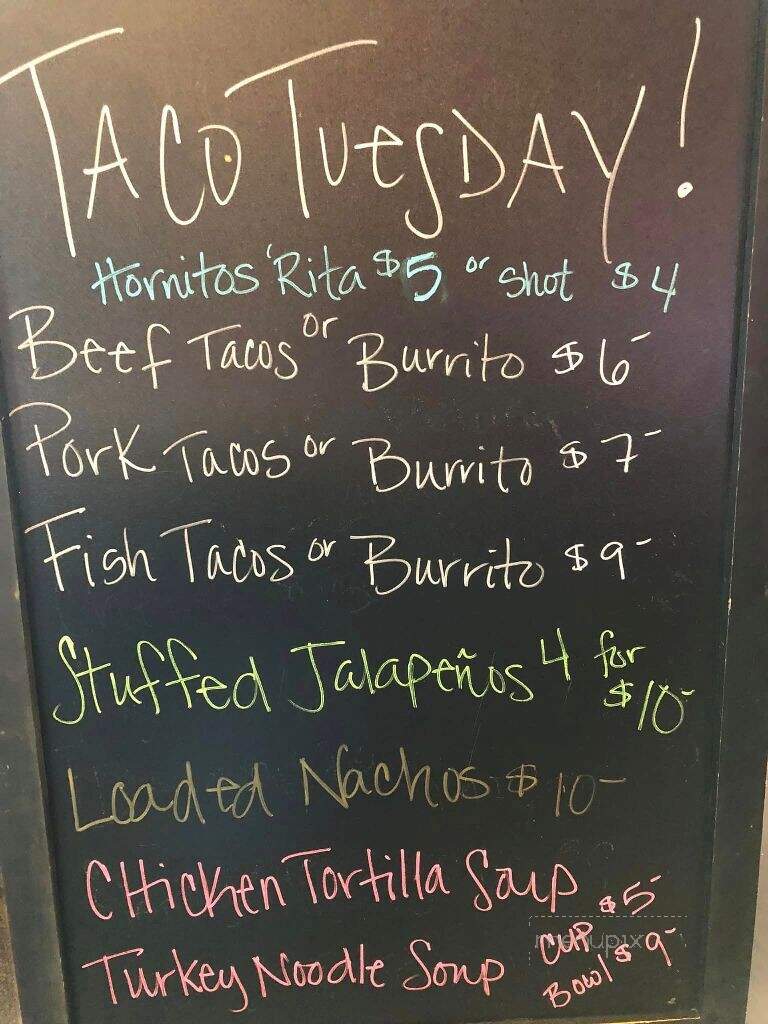 TACO TUESDAY!
Hornitos 'Rita $5 or Shot $4
Beef Tacos or Burrito $6-
Pork Tacos or Burrito $7-
Fish Tacos or Burrito $9-
Stuffed Jalapeños 4 for $10-
Loaded Nachos $10-
Chicken Tortilla Soup
Turkey Noodle Soup
CUP $5-
Bowl $9-
menupix